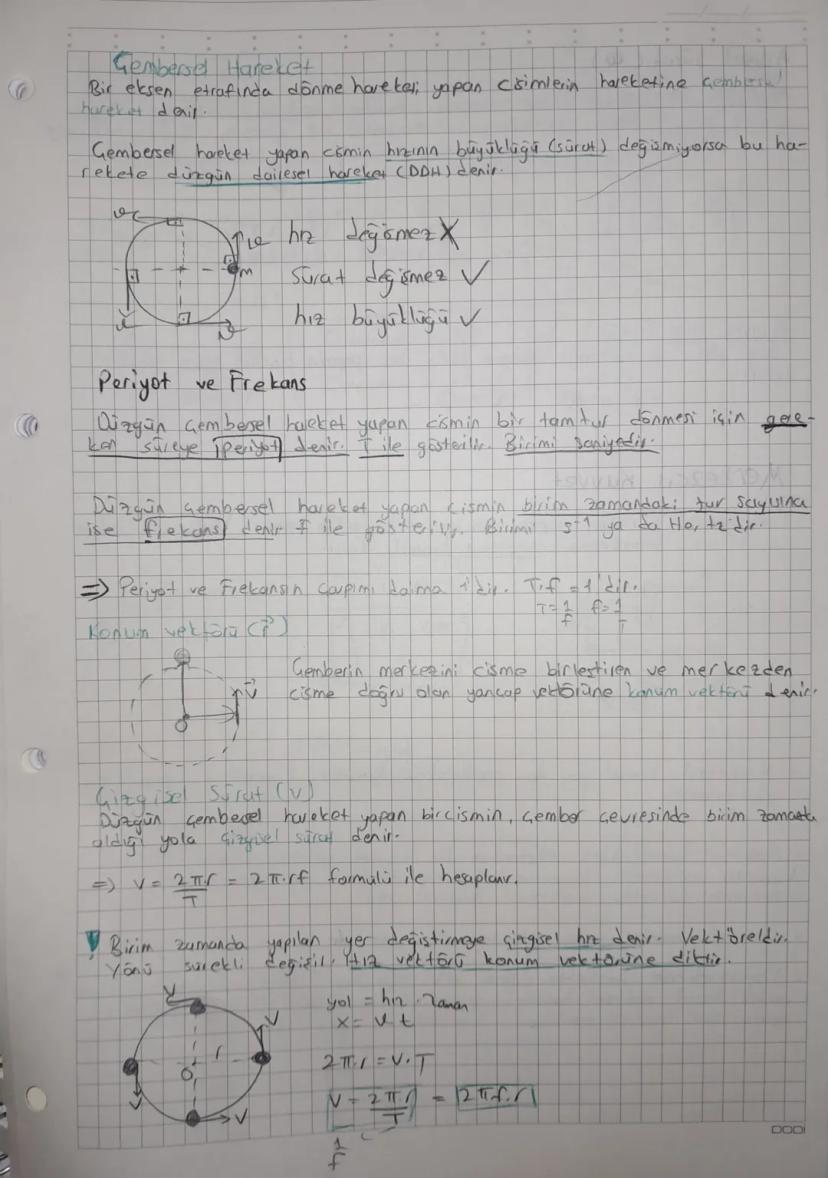 Çembersel Hareket
Bir eksen etrafında dönme hareketi yapan cisimlerin hareketine çembersel
hareket denir.
Çembersel hareket yapan cismin hızının büyüklüğü (sürat) değişmiyorsa bu ha-
rekete düzgün dairesel hareket (DDH) denir.
v
v hız değişmez X
m sürat değişmez ✓
hız büyüklüğü ✓
v v
Periyot ve Frekans
Düzgün çembersel hareket yapan cismin bir tam tur dönmesi için gere-
ken süreye periyot denir. T ile gösterilir. Birimi saniyedir.
Düzgün çembersel hareket yapan cismin birim zamandaki tur sayısına
ise frekans denir f ile gösterilir. Birimi s⁻¹ ya da Hertz'dir.
⇒ Periyot ve Frekansın çarpımı daima 1'dir. T.f = 1'dir.
T = 1/f f = 1/T
Konum vektörü (r⃗)
Çemberin merkezini cisme birleştiren ve merkezden
v⃗ cisme doğru olan yarıçap vektörüne konum vektörü denir.
Çizgisel Sürat (v)
Düzgün çembersel hareket yapan bir cismin, çember çevresinde birim zamanda
aldığı yola çizgisel sürat denir.
⇒ v = 2πr/T = 2π.rf formülü ile hesaplanır.
! Birim zamanda yapılan yer değiştirmeye çizgisel hız denir. Vektöreldir.
Yönü sürekli değişir. Hız vektörü konum vektörüne diktir.
v yol = hız . zaman
v x = v t
O r 2π.r = v.T
v
v v = 2πr/T = 2πf.r
1/f